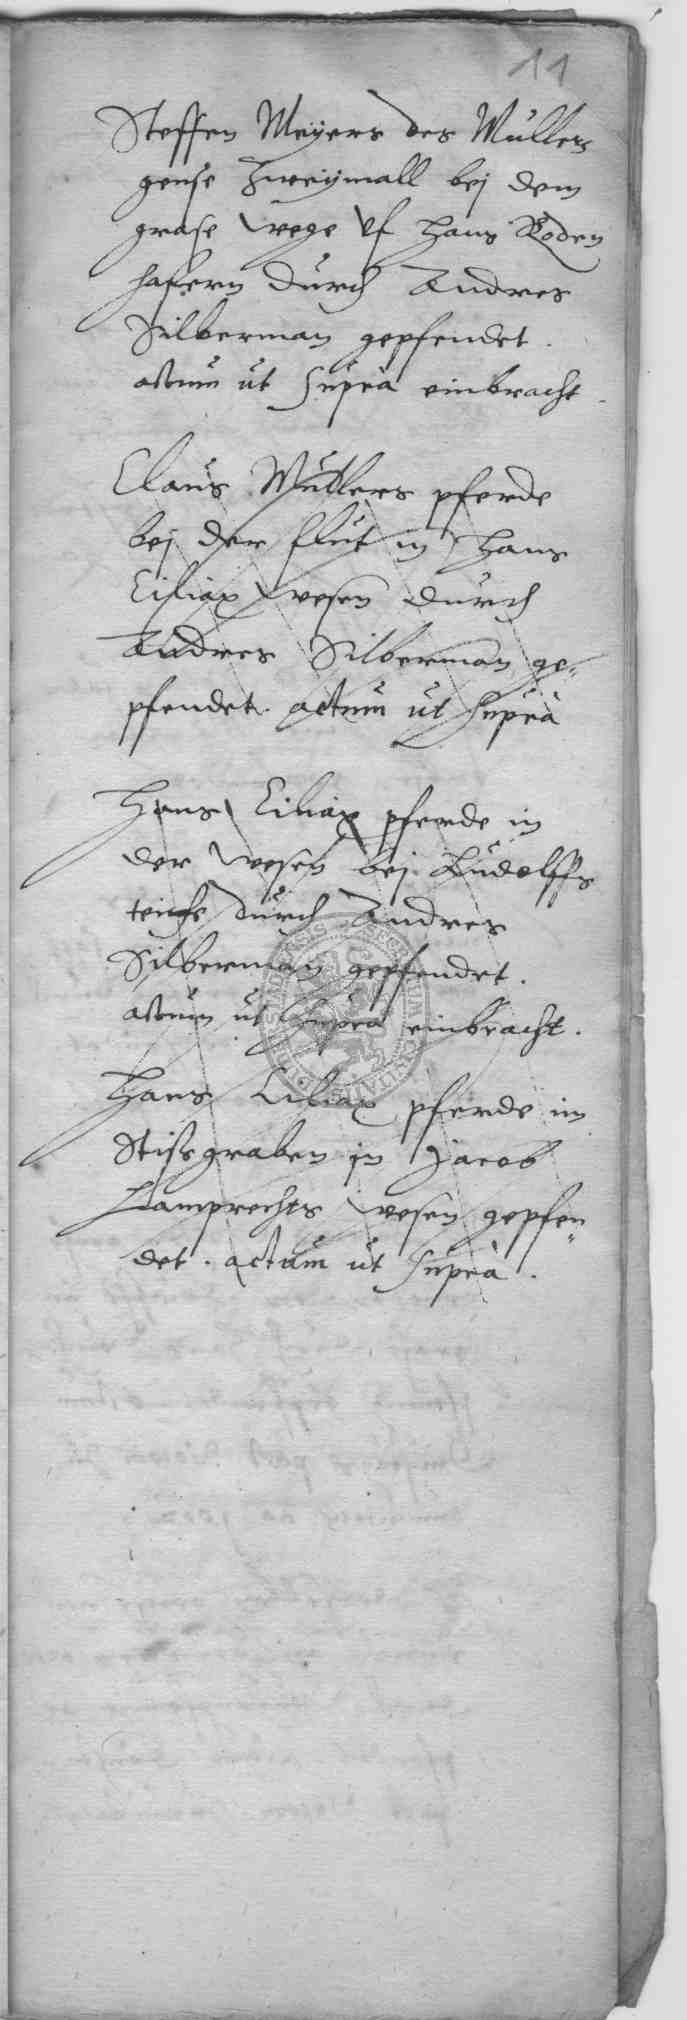 11
Steffen Meÿers des Müllers
gense Zweÿmall bej dem
grase wege vf Hans Roden
hafern durch Andres
Silberman gepfendet.
actum ut supra einbracht.
Claus Müllers pferde
bej der flut in Hans
Ciliax wesen durch
Andres Silberman ge-
pfendet. actum ut supra
Hans Ciliax pferde in
der wesen bej Rudolffs
teiche durch Andres
Silberman gepfendet.
actum ut supra einbracht.
Hans Ciliax pferde im
Stifsgraben in Jacob
Lamprechts wesen gepfen-
det. actum ut supra.